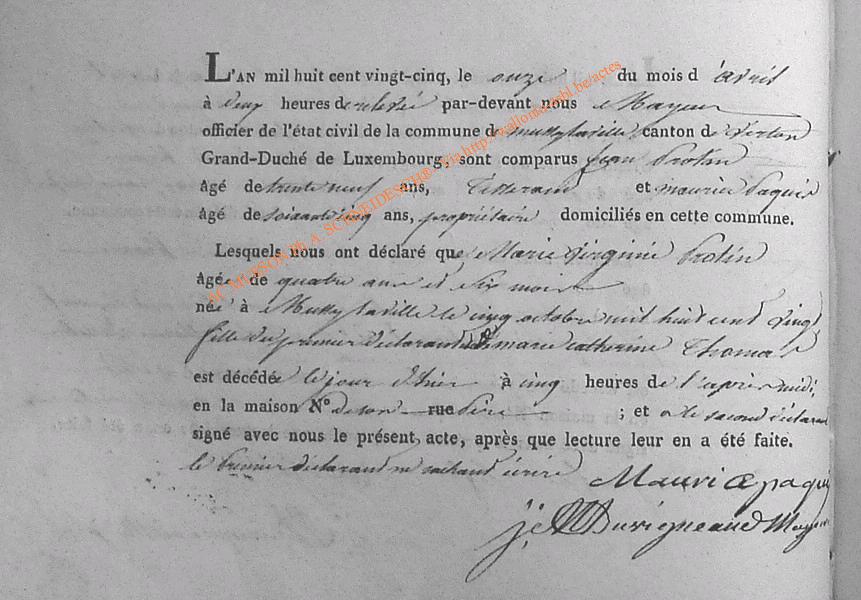 L'AN mil huit cent vingt-cinq, le onze du mois d'avril
à deux heures de relevée par-devant nous Mayeur
officier de l'état civil de la commune de Mussy la ville, canton de Virton
Grand-Duché de Luxembourg, sont comparus jean Protin
âgé de trente neuf ans, Tisserand et maurice Paquis
âgé de soixante cinq ans, propriétaire domiciliés en cette commune.
Lesquels nous ont déclaré que Marie Virginie Protin
âgée de quatre ans et Six mois
née à Mussy la ville le cinq octobre mil huit cent vingt
fille du premier déclarant et de marie catherine Thomas
est décédée le jour d'hier à cinq heures de l'après midi,
en la maison N° de son rue Père ; et a le second déclarant
signé avec nous le présent acte, après que lecture leur en a été faite.
le Premier déclarant ne sachant écrire
Maurice paquis
Duvigneaud Mayeur
SCHNEIDESCH® via http://wallonia.asbl.be/actes